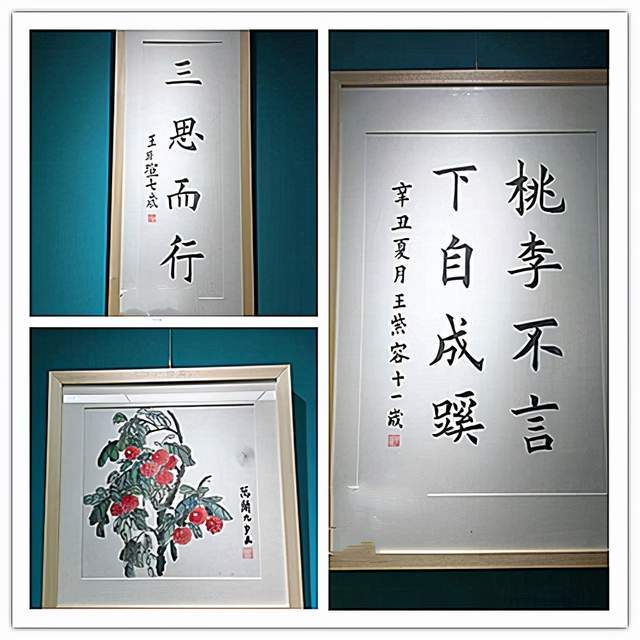 三思而行
王玥瑄七歲
桃李不言
下自成蹊
辛丑夏月王紫容十一歲